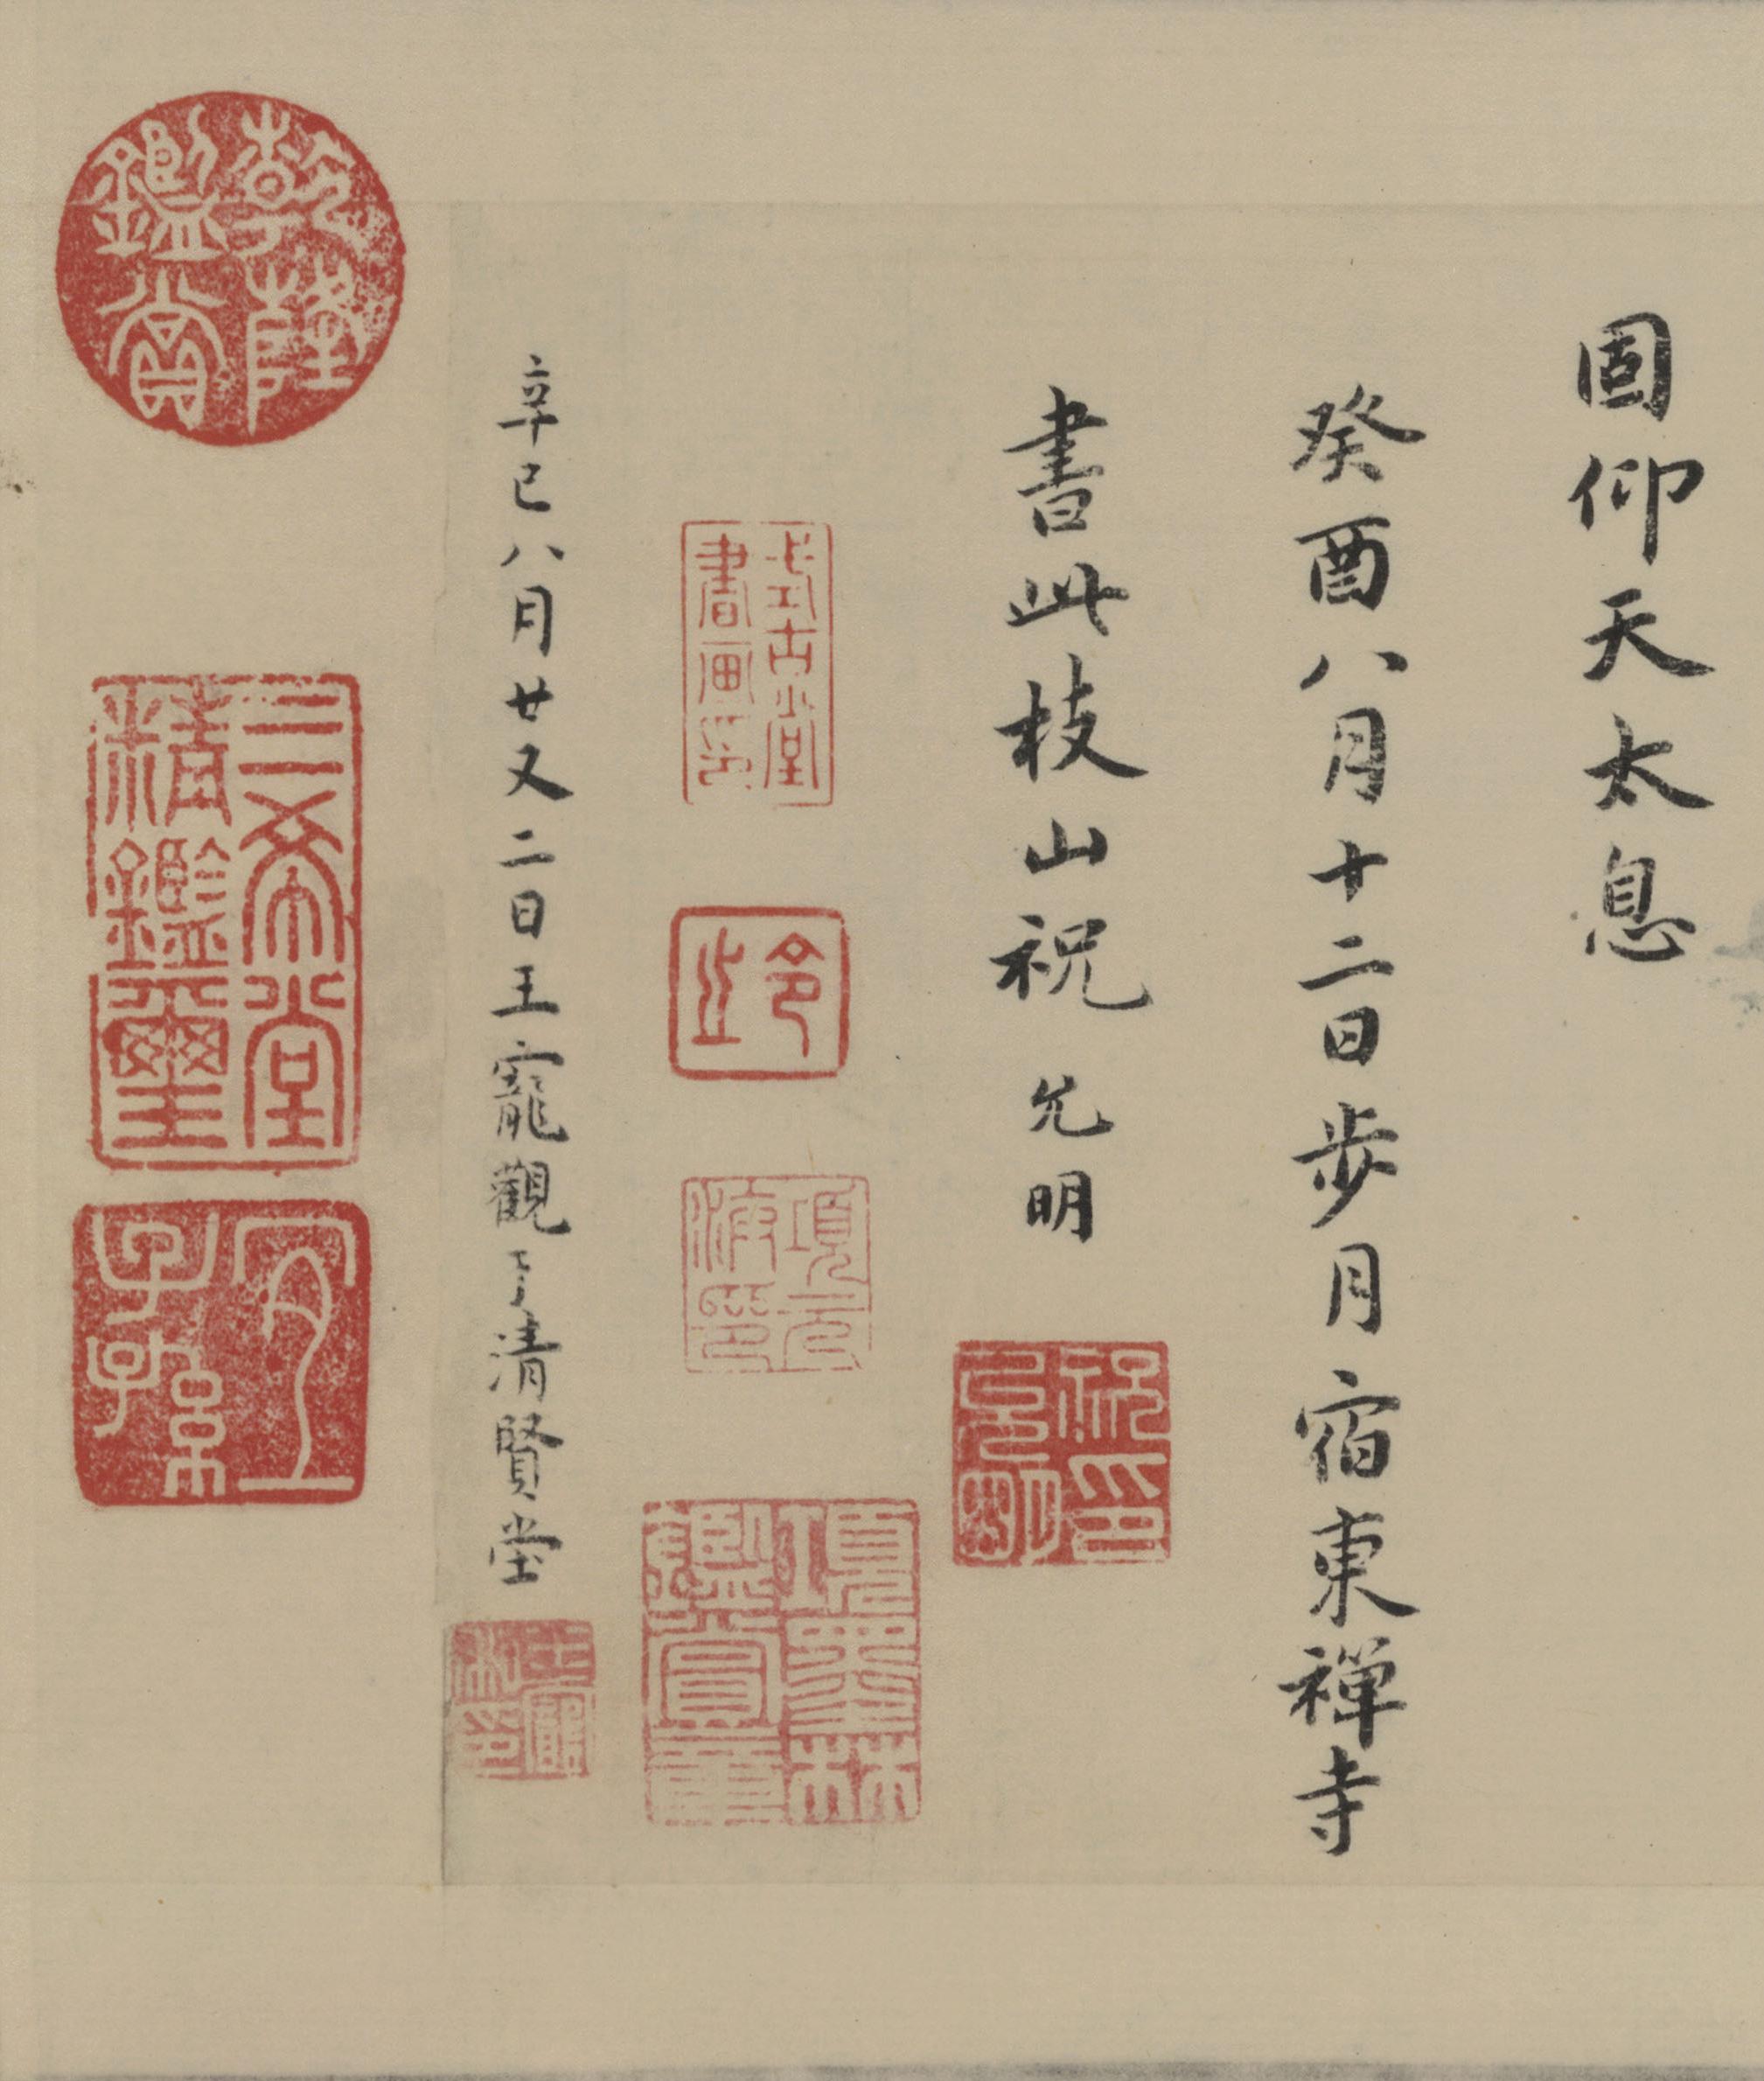 固仰天太息
癸酉八月十二日步月宿東禅寺
書此枝山祝允明
祝印允明
式古堂書畫印
項元汴印
項墨林鑑賞章
辛巳八月廿又二日王寵觀于清賢堂
王寵私印
乾隆鑑賞
三希堂精鑑璽
宜子孫